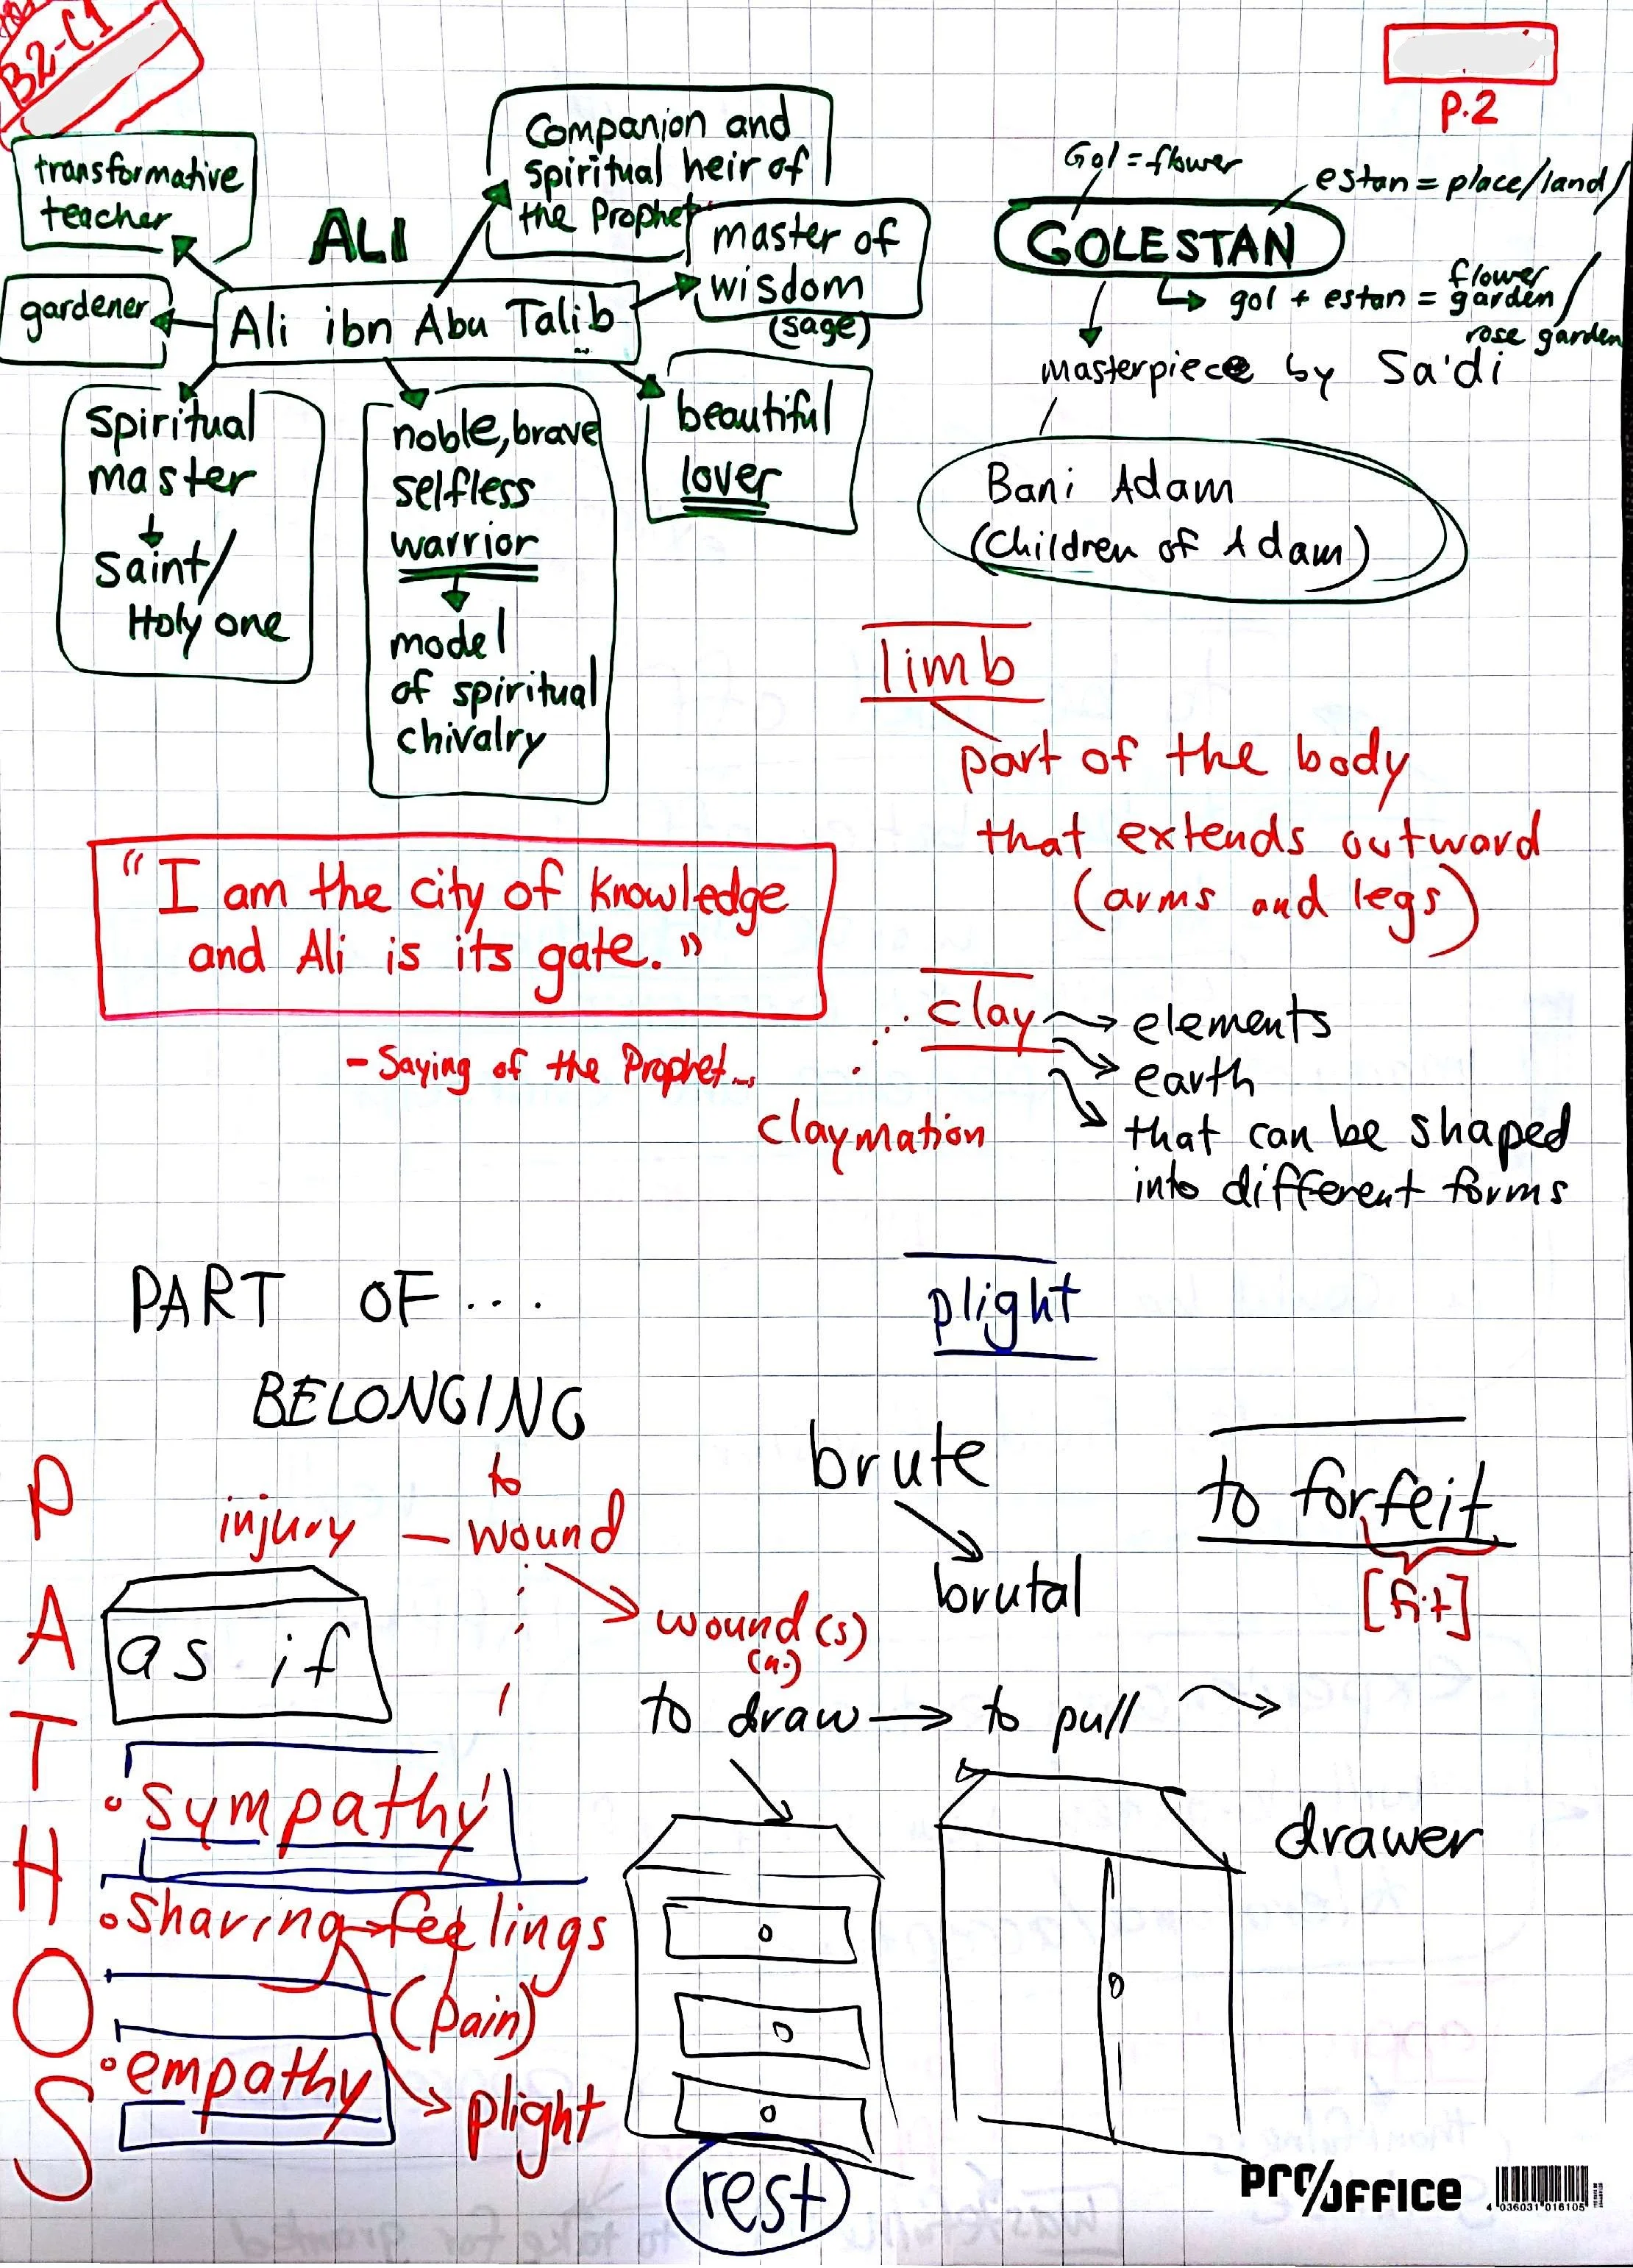 B2-C1
P.2
transformative
teacher
ALI
Companion and
spiritual heir of
the Prophet
master of
wisdom
(sage)
gardener
Ali ibn Abu Talib
Spiritual
master
Saint/
Holy one
noble, brave
selfless
warrior
model
of spiritual
chivalry
beautiful
lover
Gol = flower
estan = place/land/
GOLESTAN
gol + estan = flower garden/
rose garden
masterpiece by Sa'di
Bani Adam
(Children of Adam)
limb
part of the body
that extends outward
(arms and legs)
"I am the city of knowledge
and Ali is its gate."
- Saying of the Prophet...
clay
elements
earth
that can be shaped
into different forms
claymation
PART OF...
BELONGING
to
plight
injury — wound
wound(s)
(n.)
brute
brutal
to forfeit
[fit]
as if
PATHOS
• sympathy
• sharing feelings
(pain)
• empathy
plight
to draw → to pull
drawer
rest
PRO/OFFICE
4 036031 016105